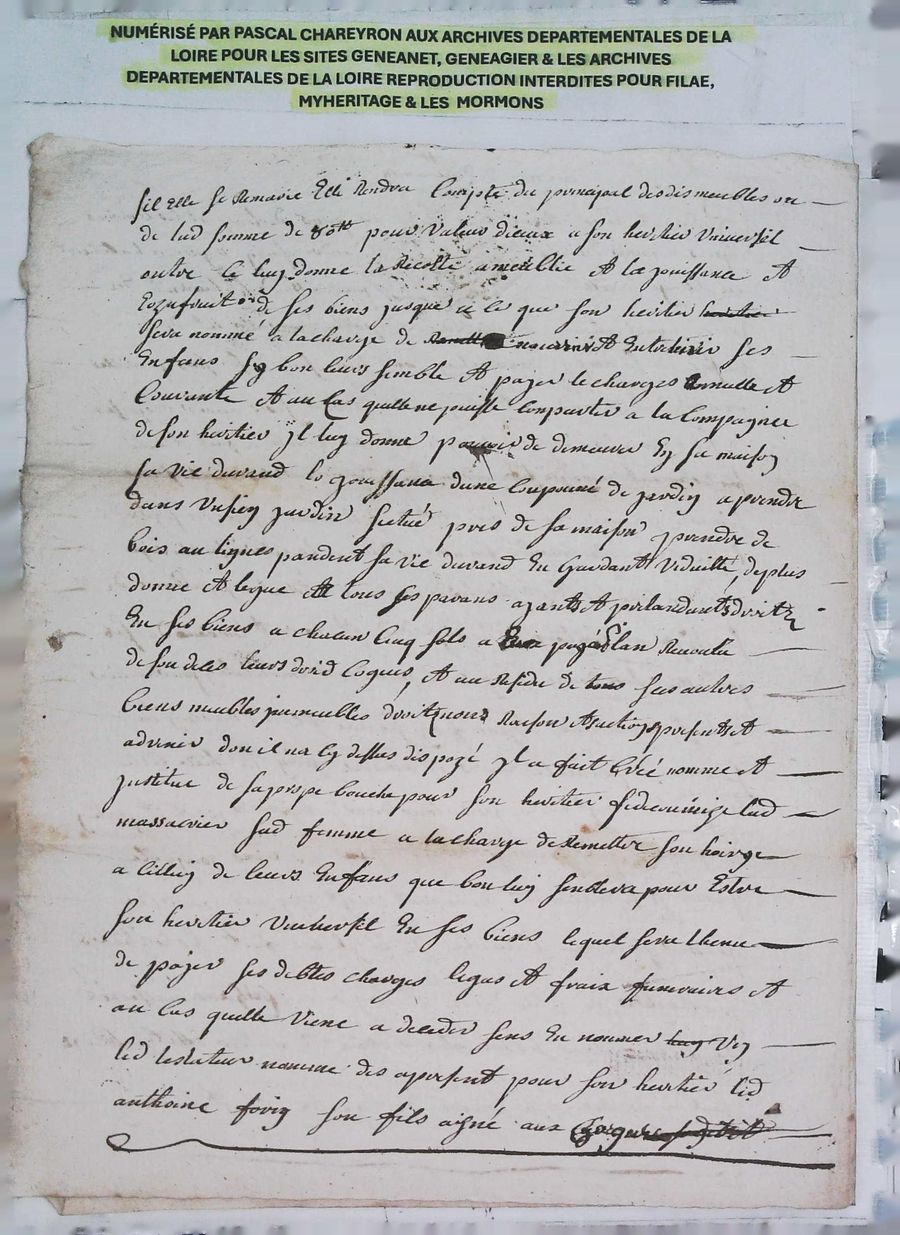 NUMÉRISÉ PAR PASCAL CHAREYRON AUX ARCHIVES DEPARTEMENTALES DE LA
LOIRE POUR LES SITES GENEANET, GENEAGIER & LES ARCHIVES
DEPARTEMENTALES DE LA LOIRE REPRODUCTION INTERDITES POUR FILAE,
MYHERITAGE & LES MORMONS
sil Elle se Remarie Elle Rendra Compte du principal desdis meubles ou
de lad somme de 80tt pour valeur diceux a son heritier universel
outre ce luy donne la Recolte ameublie Et la jouissance Et
de ses biens jusque a ce que son heritier heritier
sera nommé a la charge de nourrir Et Entretenir ses
Enfans sy bon leurs semble Et payer le charges Annuelle Et
Courante Et au Cas quelle ne puisse Comporter a la Compagnie
de son heritier jl luy donne pouvoir de demeurer En sa maison
sa vie durand la jouissance dune de jardin a prendre
dans un sien jardin situé pres de sa maison prendre de
bois au lignes pandent sa vie durand En Gardant Viduitté, de plus
donne Et legue Et tous ses parans ayants Et pretandants droitz
En ses biens a chacun Cinq sols a payé Elan Revoulu
de son deces leurs Et au Residu de tous ses autres
biens meubles jmmeubles droitz noms Raison Et actions presents Et
advenir don il na Cy dessus disposé jl a fait Créé nomme Et
jnstitue de sa propre bouche pour son heritier lad
massacrier sad femme a la charge de Remettre son hoirye
a Celluy de leurs Enfans que bon luy semblera pour Estre
son heritier Universel En ses biens lequel sera thenu
de payer ses debtes charges legas Et fraix funeraires Et
au Cas quelle Viene a deceder sens En nommer Un
led testateur nomme des apresent pour son heritier led
anthoine son fils aigné aux